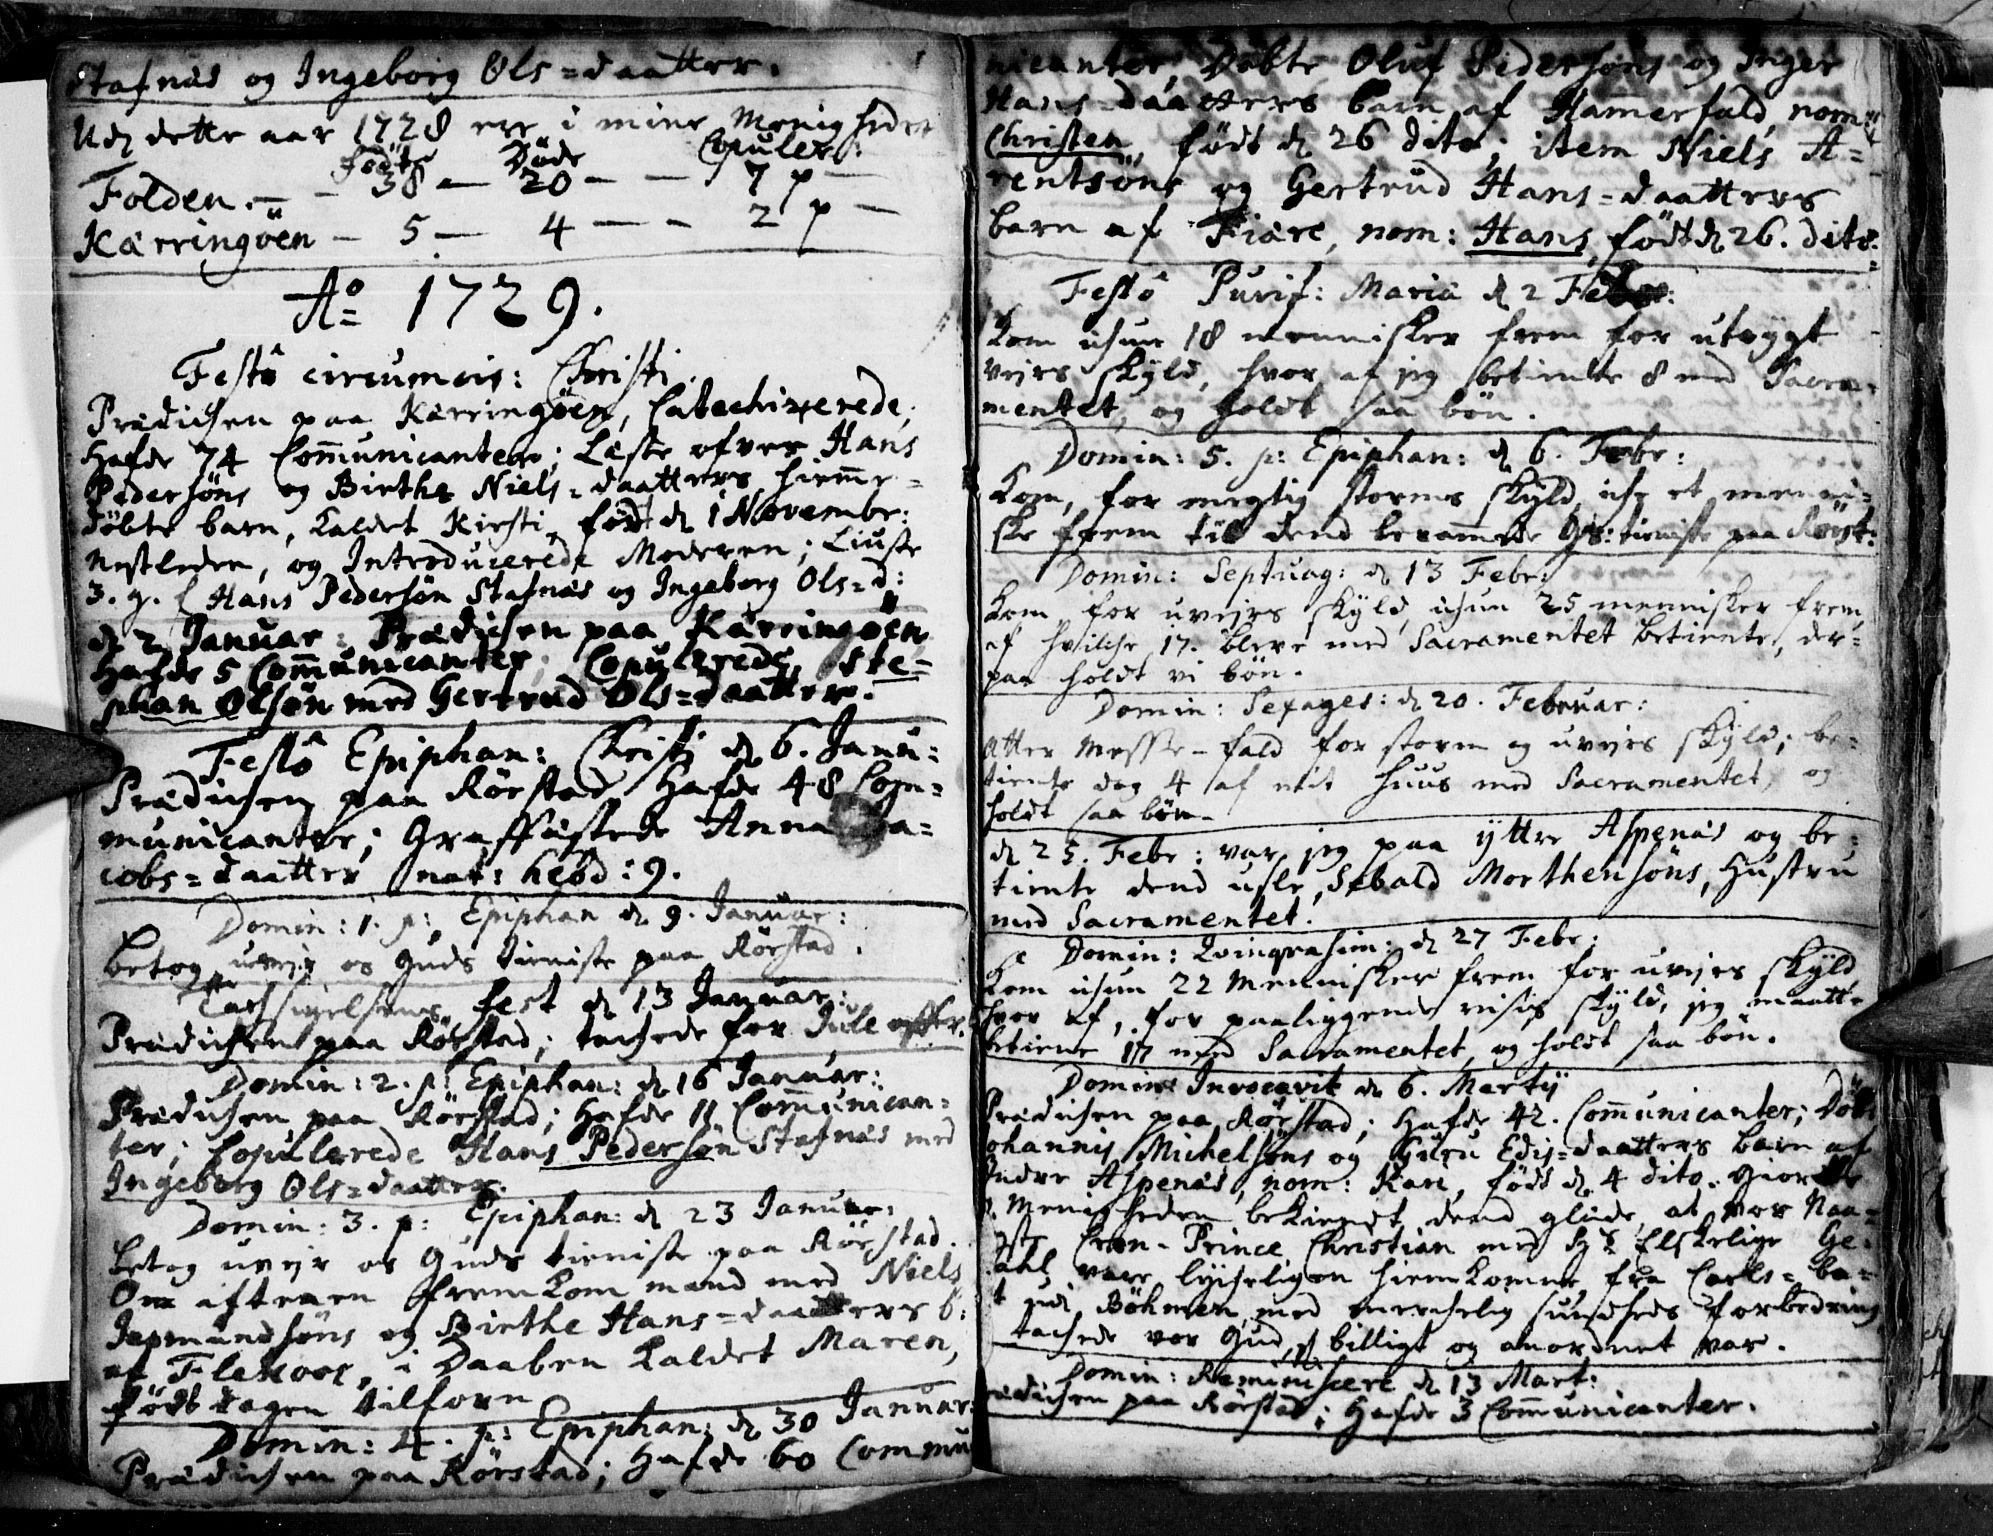 Stafnæs og Ingeborg Ols=daatter.
Udj dette aar 1728 ere i mine Menigheder
Fødte Døde Copuler:
Folden. — — 38 — 20 — — 7 p —
Kærringøen — 5 — 4 — — 2 p —
Aº 1729.
Festô circumcis: Christi
Prædichen paa Kærringøen, Catechizerede;
Hafde 74 Communicantere; Læste ofver Hans
Pedersøns og Birthe Niels=daatters hiemme=
døbte barn, kaldet Kirsti, født d. 1 Novembr:
nestleden, og Introducerede Moderen; Liuste
3. g. f Hans Pedersøn Stafnæs og Ingeborg Ols=d:
d. 2 Januar: Prædichen paa Kærringøen
Hafde 5 Communicanter; Copulerede Ste=
phan Olsøn med Gertrud Ols=daatter.
Festô Epiphan: Christi d. 6. Janu:
Prædichen paa Rørstad Hafde 48 Com=
municanter; Graffæstede Anna Ja=
cobs=daatter nat: hebd: 9.
Domin: 1. p: Epiphan d. 9. Januar:
Betog uvejr os Guds tieniste paa Rørstad.
Tachsigelsens fest d. 13 Januar:
Prædichen paa Rørstad; tachede for Jule offer.
Domin: 2. p: Epiphan: d. 16 Januar:
Prædichen paa Rørstad; Hafde 11 Communican=
ter; Copulerede Hans Pedersøn Stafnæs med
Ingeborg Ols=daatter.
Domin: 3. p: Epiphan: d. 23 Januar:
Betog uvejr os Guds tieniste paa Rørstad.
Om aftenen fremkom mand med Niels
Jepmundsøns og Birthe Hans=daatters b:
af, i Daaben kaldet Maren,
født dagen tilforn
Domin: 4. p: Epiphan: d. 30 Januar:
Prædichen paa Rørstad; Hafde 60 Commu
nicanter, Døbte Oluf Pedersøns og Inger
Hans=daatters barn af Hamerfald, nom:
Christen, født d. 26 dito; item Niels A=
rentsøns og Gertrud Hans=daatters
barn af Fiære, nom: Hans, født d. 26. dito.
Festô Purif: Mariæ d. 2 Febr:
Kom ichun 18 mennisker frem for utrygt
vejrs skyld, hvor af jeg betiente 8 med Sacra=
mentet, og holdt saa bøn.
Domin: 5. p: Epiphan: d. 6. Febr:
Kom, for megtig storms skyld, iche et menni=
ske frem til dend berammede Gs: tieniste paa Rørst:
Domin: Septuag: d. 13 Febr:
Kom for uvejrs skyld, ichun 25 mennisker frem,
af hvilche 17. bleve med Sacramentet betiente, der=
paa holdt vi bøn.
Domin: Sexages: d. 20. Februar:
Atter Messe-fald for storm og uvejrs skyld; be=
tiente dog 4 af mit huus med Sacramentet, og
holdt saa bøn.
d. 25. Febr: var jeg paa yttre Aspenæs og be=
tiente dend usle Sebald Morthensøns Hustru
med Sacramentet.
Domin: Qvinqvasim: d. 27 Febr:
Kom ichun 22 Mennisker frem for uvejrs skyld
hvor af, for paaliggende rejses skyld, jeg maatte
betiene 17 med Sacramentet, og holdt saa bøn.
Domin: Invocavit d. 6. Martij
Prædichen paa Rørstad; Hafde 42. Communicanter; Døbte
Johannis Michelsøns og Guru Edis=daatters barn af
Indre Aspenæs, nom: Kari, født d. 4 dito. Giorde
Menigheden bekiendt dend glæde, at vor Naa=
digste Cron-Prince Christian med Hs Elskelige Ge=
mahl vare lychelig hiemkomne fra Carls=ba=
t udi Bøhmen med merchelig sundheds forbedring
tachede vor Gud, billigt og anordnet var.
Domin: Reminiscere d. 13 Mart:
Prædichen paa Rørstad; Hafde 3 Communicanter.